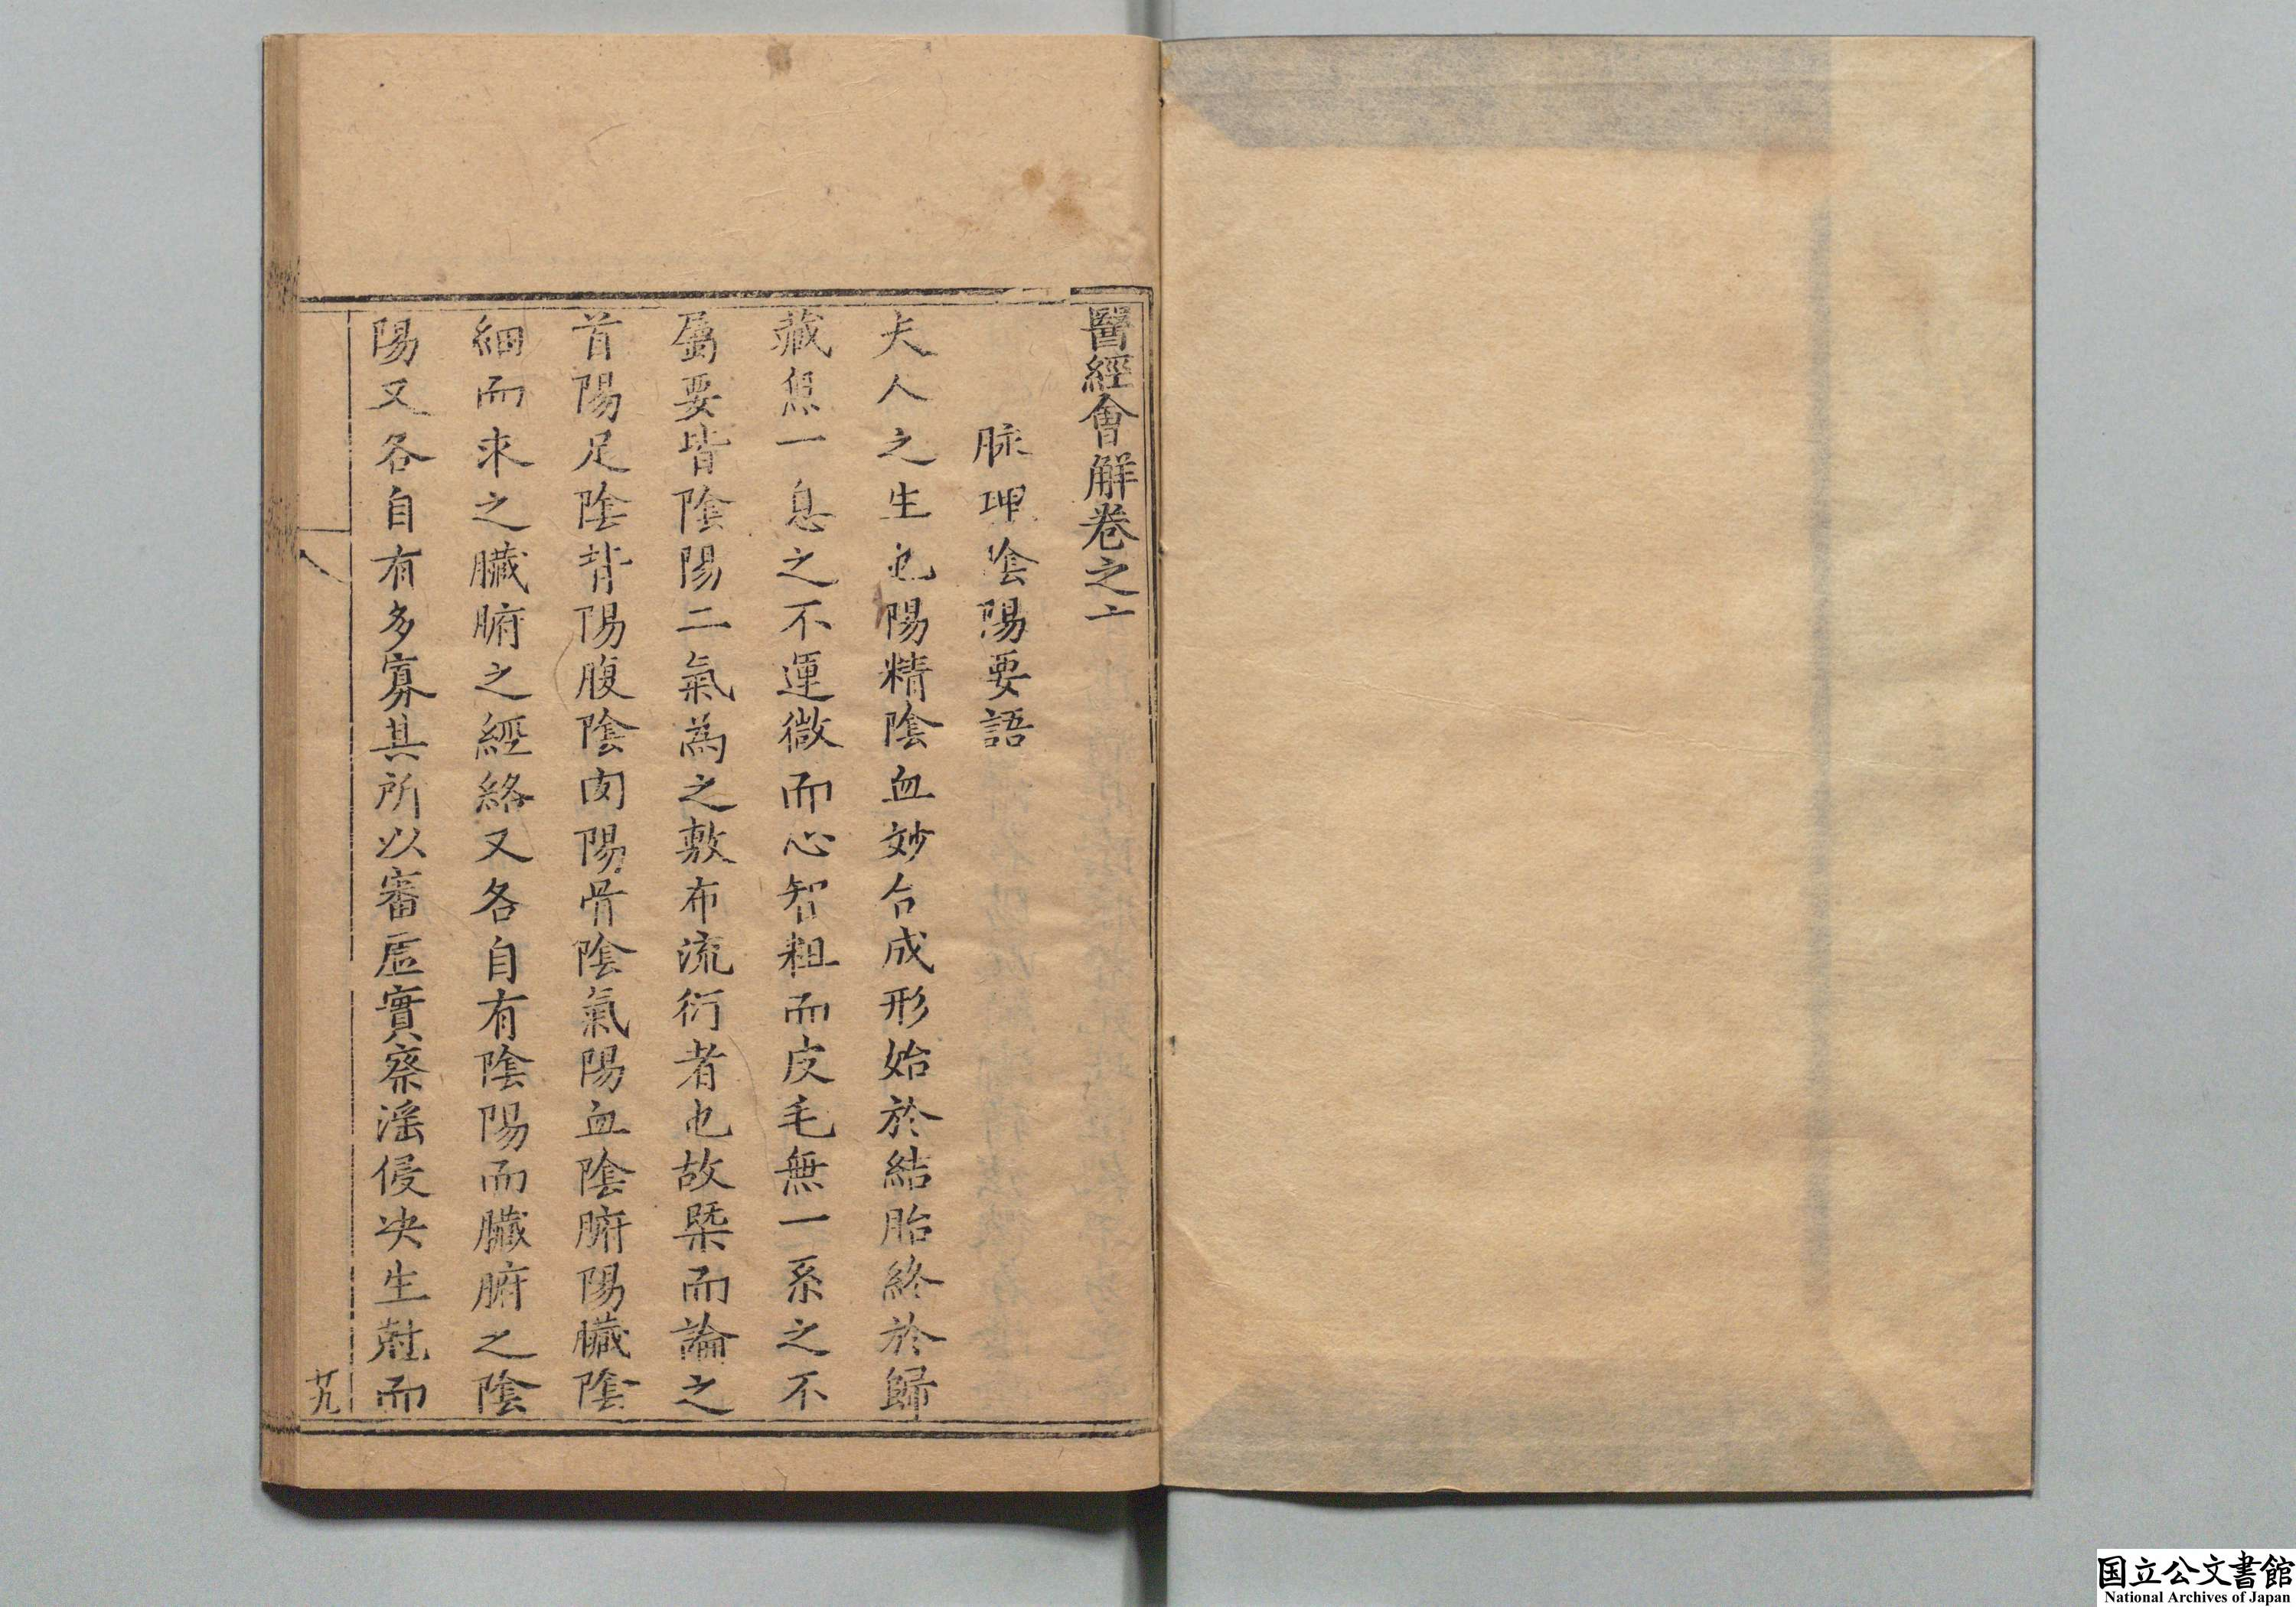 醫經會解卷之六
脉理陰陽要語
夫人之生也陽精陰血妙合成形始於結胎終於歸
藏無一息之不運微而心智粗而皮毛無一系之不
屬要皆陰陽二氣為之敷布流衍者也故槩而論之
首陽足陰背陽腹陰肉陽骨陰氣陽血陰腑陽臟陰
細而求之臟腑之經絡又各自有陰陽而臟腑之陰
陽又各自有多寡其所以審虛實察淫侵决生尅而
八
廿九
国立公文書館
National Archives of Japan